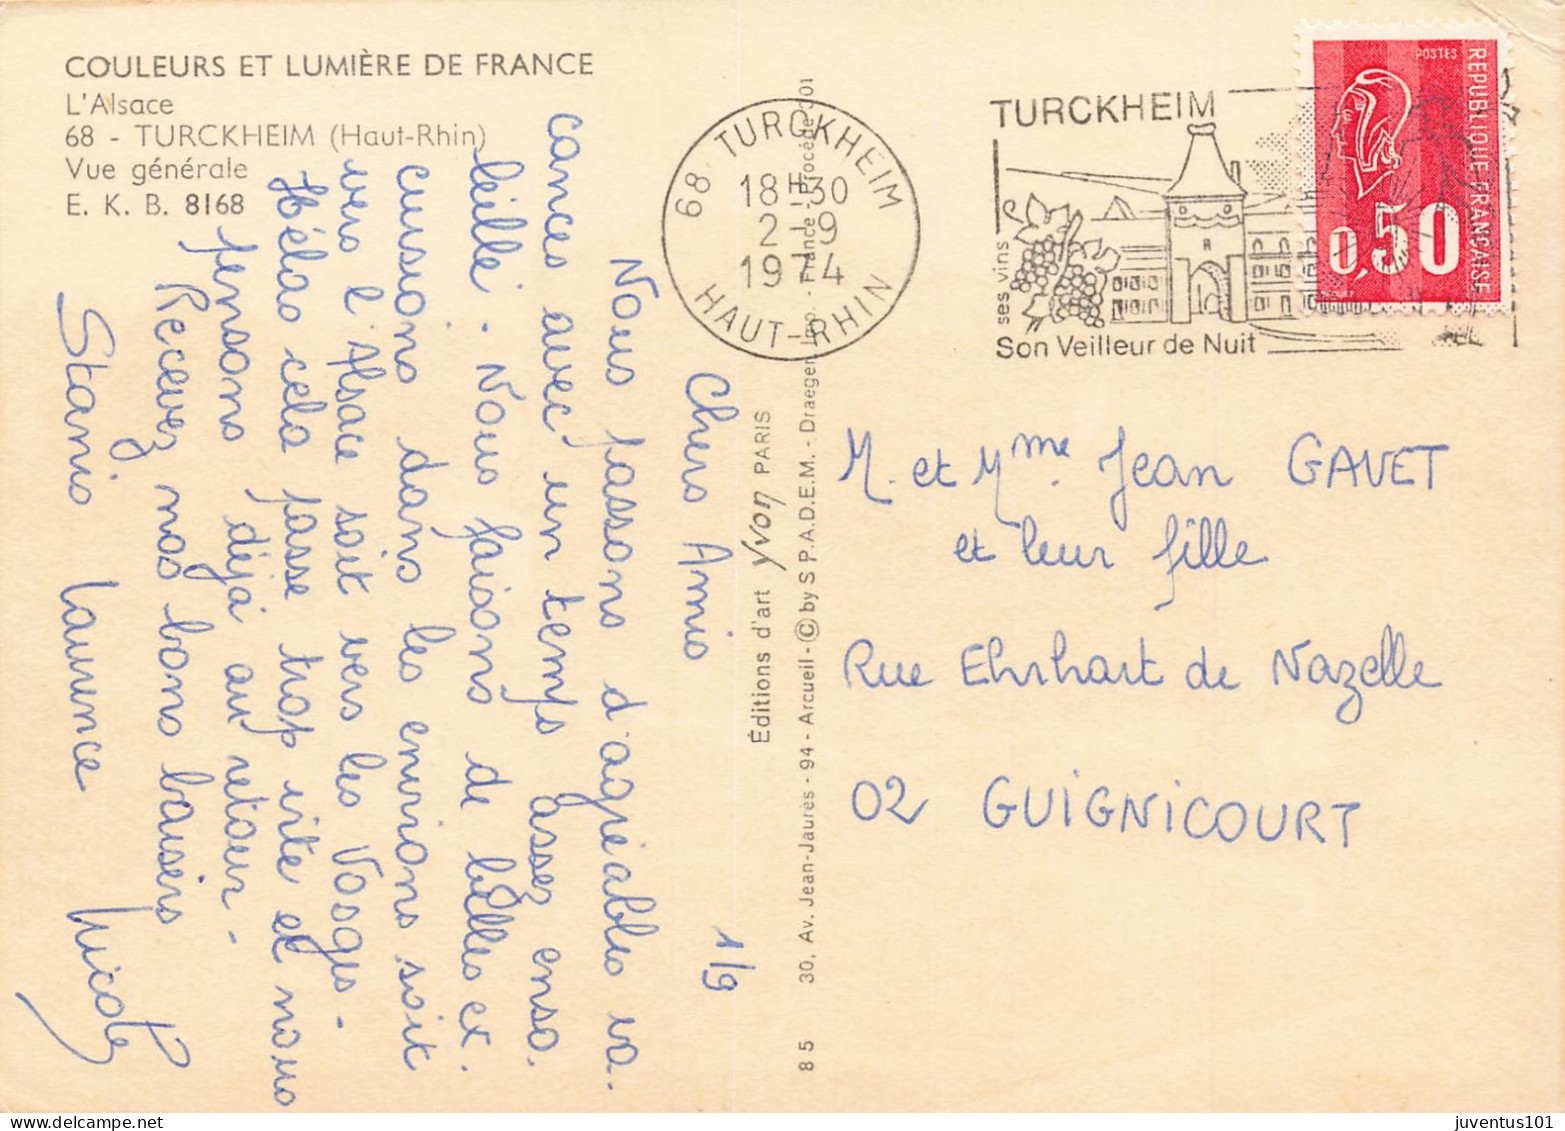 COULEURS ET LUMIÈRE DE FRANCE
L'Alsace
68 - TURCKHEIM (Haut-Rhin)
Vue générale
E. K. B. 8168
1/9
Chers Amis
Nous passons d'agréables va-
cances avec un temps assez enso-
leillé. Nous faisons de belles ex-
cursions dans les environs soit
vers l'Alsace soit vers les Vosges.
Hélas cela passe trop vite et nous
pensons déjà au retour.
Recevez nos bons baisers
Stanis Laurence Nicole
Éditions d'art Yvon PARIS
85 30, Av. Jean-Jaurès - 94 - Arcueil - © by S.P.A.D.E.M. - Draeger Imp. - France - Procédé 301
68 TURCKHEIM
18H30
2-9
1974
HAUT-RHIN
TURCKHEIM
ses vins
Son Veilleur de Nuit
POSTES
REPUBLIQUE FRANÇAISE
0,50
M. et Mme. Jean GAVET
et leur fille
Rue Ehrhart de Nazelle
02 GUIGNICOURT
juventus101